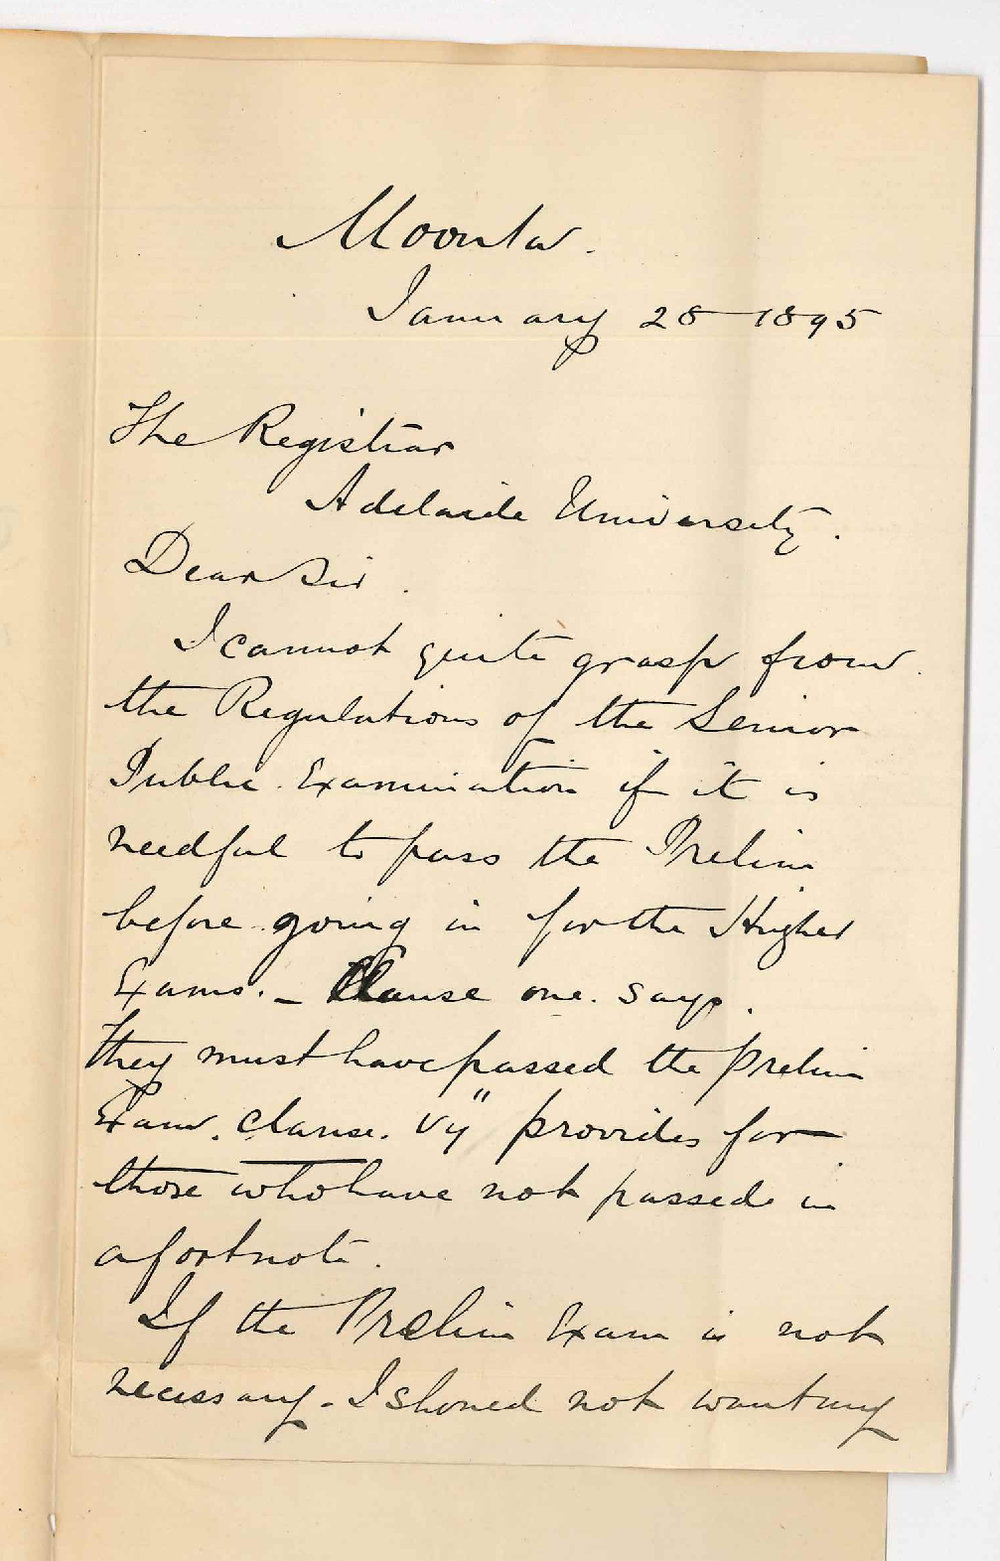 Moonta.
January 28 1895
The Registrar
Adelaide University.
Dear Sir.
I cannot quite grasp from
the Regulations of the Senior
Public Examination if it is
needful to pass the Prelim
before going in for the Higher
Exams. - Clause one. says.
they must have passed the prelim
Exam. clause. vij" provides for
those who have not passed in
a footnote.
If the Prelim Exam is not
necessary - I should not want my